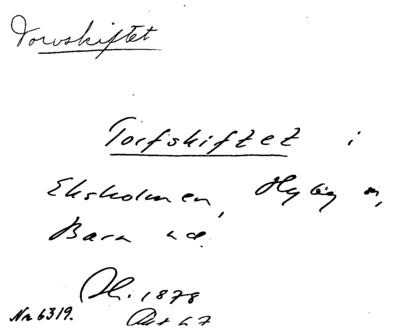 Torvskiftet
Torfskiftet i
Eksholmen, Hyby sn,
Bara hd.
1878
Nr 6319.